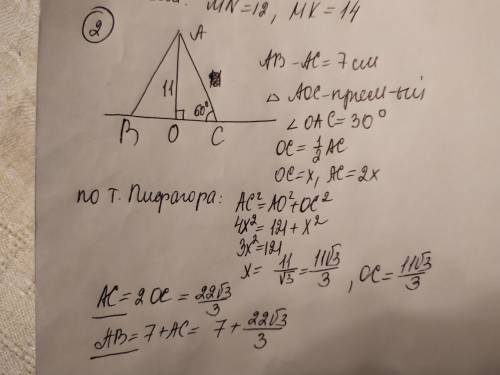 MN=12, MK=14
2
A
11
60°
B O C
AB-AC=7см
△ AOC-прям-ый
∠OAC=30°
OC=½AC
OC=x, AC=2x
по т. Пифагора: AC²=AO²+OC²
4x²=121+x²
3x²=121
x= 11/√3=11√3/3, OC=11√3/3
AC=2OC=22√3/3
AB=7+AC= 7+22√3/3